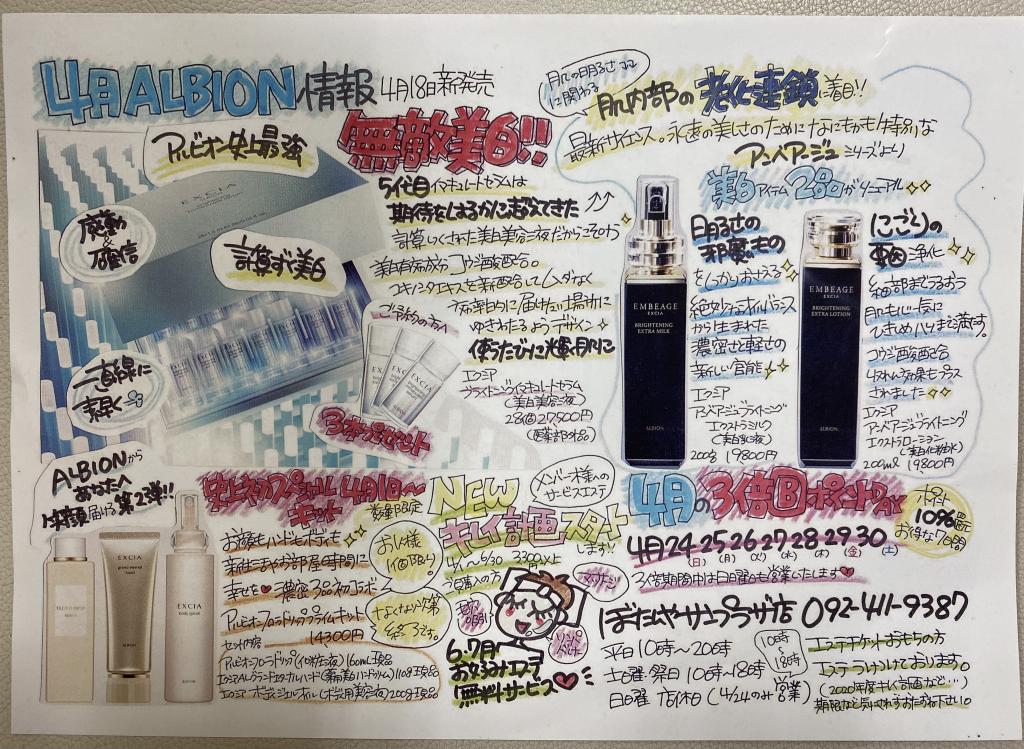 4月 ALBION 情報 4月18日新発売
アルビオン史上最強
無敵美白!!
感動
&
確信
計算ずく美白
一直線に
輝く
EXCIA
5代目イマキュレートセラムは
期待をはるかに超えてきた
計算しつくされた美白美容液だからこその
美白有効成分コウジ酸配合。
効率的に届けたい場所に
ゆきわたるようデザイン
使うたびに輝く肌に
エクシア
ブライトニングイマキュレートセラム
(美白美容液)
28個 27,500円
(医薬部外品)
ご予約の方へ
EXCIA
肌の明るさに関わる
肌内部の老化連鎖に着目!!
最新サイエンス。永遠の美しさのためになにもかも特別な
アンベアージュシリーズより
美白アイテム2品がリニューアル
EMBEAGE
EXCIA
BRIGHTENING
EXTRA MILK
ALBION
明るさの
邪魔もの
をしっかりおさえる
絶妙なオイルバランス
から生まれた
濃密さと軽さの
新しい官能
エクシア
アンベアージュブライトニング
エクストラミルク
(美白乳液)
200g 19800円
EMBEAGE
EXCIA
BRIGHTENING
EXTRA LOTION
ALBION
にごりの
要因浄化
細部までうるおう
肌もいっきに
ひきしめハリまで満たす。
コウジ酸配合
されました
エクシア
アンベアージュブライトニング
エクストラローション
(美白化粧水)
200ml 19800円
ALBIONから
あなたへ
笑顔届ける 第2弾!!
EXCIA
EXCIA
史上初スペシャルキット 4月1日〜
数量限定
お顔もハンドもボディも
新生活やお部屋時間に
幸せを 濃密3品初コラボ
アルビオンフローラドリッププライムキット
14300円
セット内容
アルビオンフローラドリップ(化粧液)160ml現品
エクシアALグランドエターナルハンド(薬用美白ハンドクリーム)110g現品
エクシアボディジェリーオイル(ボディ用美容液)200g現品
お1人様
1個限り
なくなり次第
終了です。
メンバー様への
サービスエステ
NEW
キレイ計画スタート
します!!
4/1〜6/30 3300円以上
ご購入の方
6.7月!
お好みエステ
無料サービス
4月の3倍ポイントDay
ポイント
10%還元
お得な7日間
4月24・25・26・27・28・29・30
(日) (月) (火) (水) (木) (金) (土)
3倍期間中は日曜日も営業いたします
ぼたんやサンプラザ店 092-411-9387
平日 10時〜20時
土曜・祭日 10時〜18時
日曜 店休 (4/24のみ営業)
10時〜18時
エステチケットおもちの方
エステうけつけております。
(2020年度キレイ計画など…)
期限など気にされずおたずね下さい。